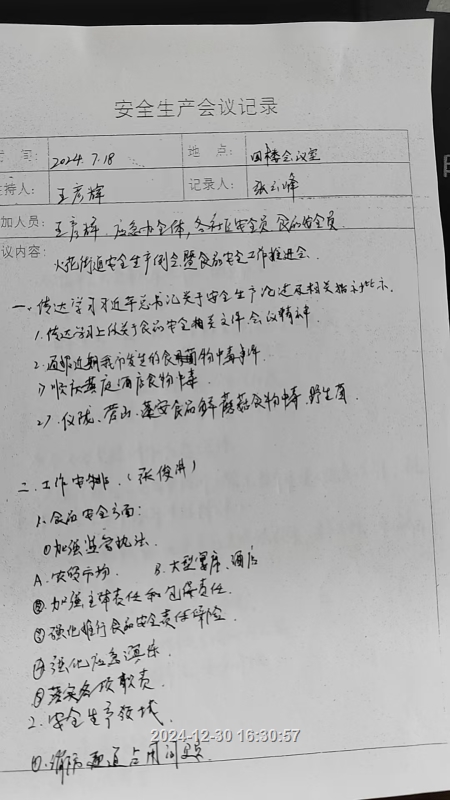 安全生产会议记录
间: 2024.7.18 地 点: 四楼会议室
持人: 王彦辉 记录人: 张云峰
加人员: 王彦辉、应急办全体,各社区安全员 食品安全员
议内容: 火花街道安全生产例会暨食品安全工作推进会.
一、传达学习习近平总书记关于安全生产论述及相关指示批示.
1.传达学习上级关于食品安全相关文件会议精神.
2.通报近期我市发生的食物中毒事件
1)顺庆 酒店食物中毒
2)、仪陇、营山、蓬安食品 蘑菇食物中毒.野生菌
二、工作安排.(张俊洪)
1.食品安全方面:
①加强监管执法.
A.农贸市场. B.大型宴席、酒店
②加强主体责任和包保责任.
③强化推行食品安全责任保险.
④强化应急演练.
⑤落实各项职责.
2.安全生产领域.
①.消防通道占用问题.
2024-12-30 16:30:57